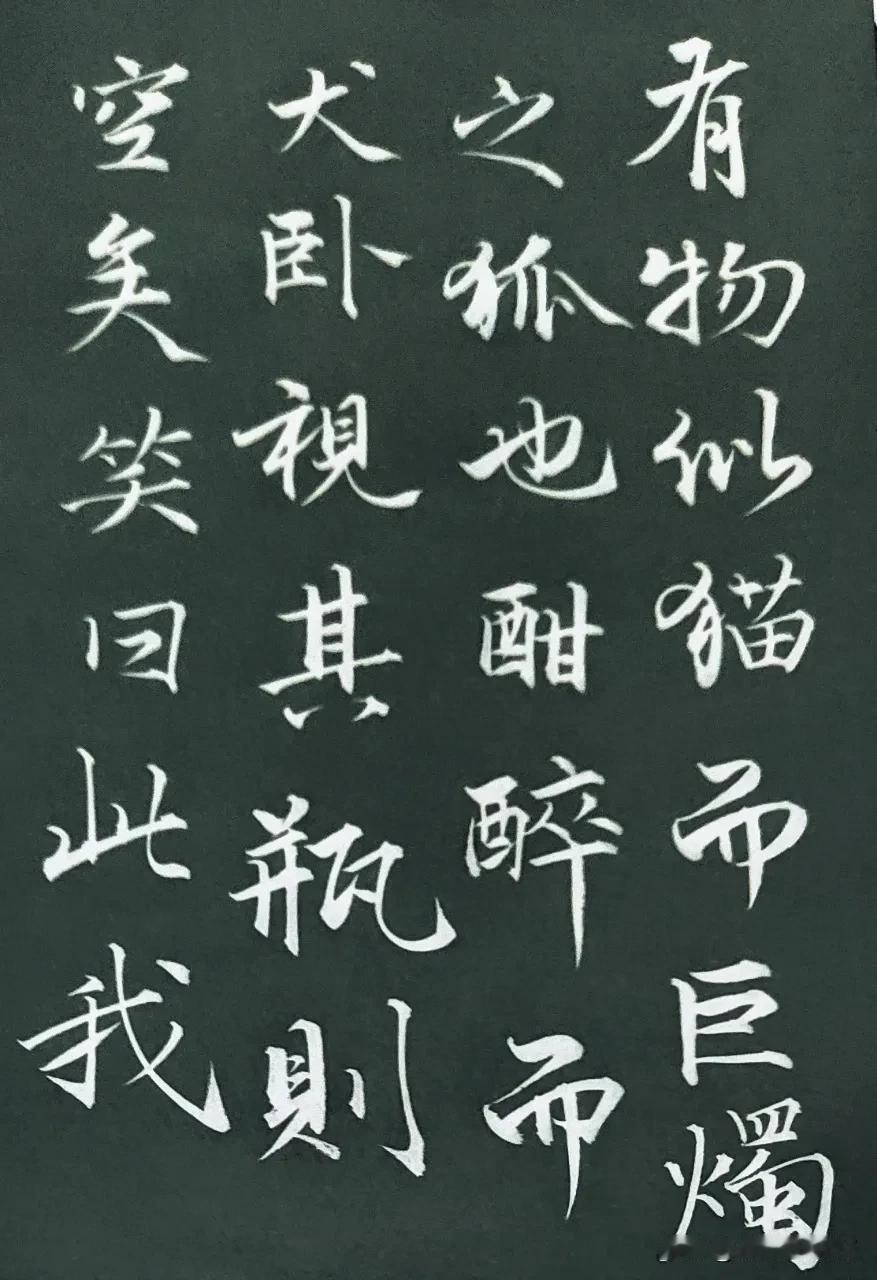 有物似猫而巨燭
之狐也酣醉而
犬卧視其瓶則
空矣笑曰此我